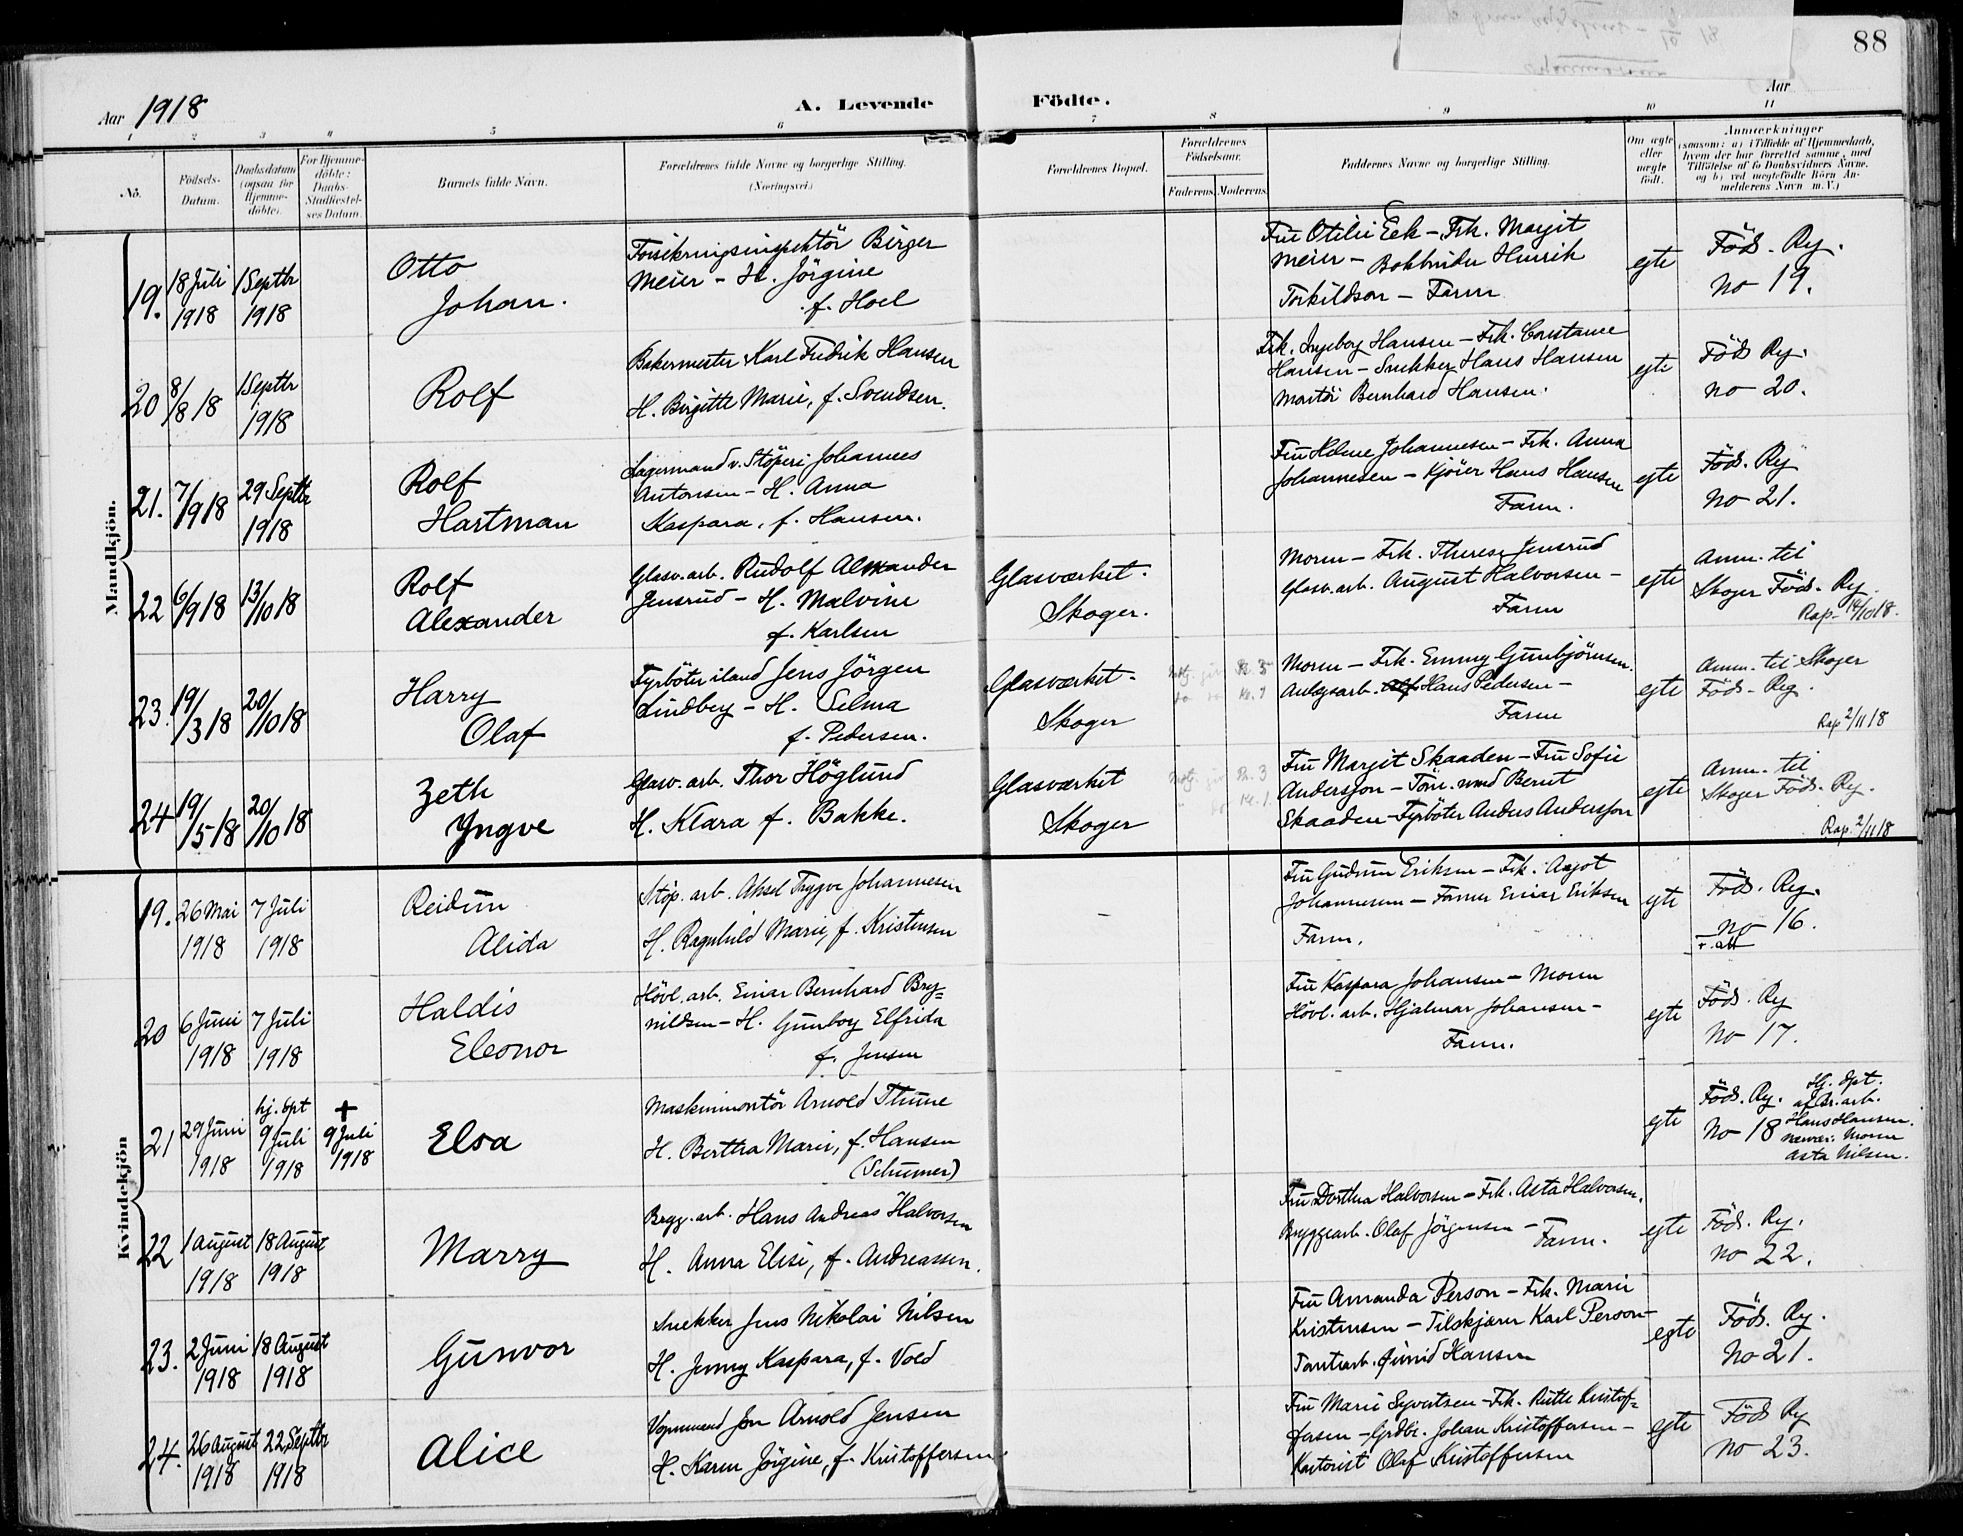 88
Aar 1918 A. Levende Födte. Aar
1 2 3 4 5 6 7 8 9 10 11
No.
Födsels-Datum.
Daabsdatum (ogsaa for Hjemmedöbte).
For Hjemmedöbte: Daabs-Stadfæstelses Datum.
Barnets fulde Navn.
Forældrenes fulde Navne og borgerlige Stilling. (Næringsvei.)
Forældrenes Bopæl.
Forældrenes Födselsaar.
Faderens. Moderens.
Faddernes Navne og borgerlige Stilling.
Om ægte eller uægte födt.
Anmærkninger
(saasom: a) i Tilfælde af Hjemmedaab,
hvem der har forrettet samme, med
Tilföielse af to Daabsvidners Navne.
og b) ved uegtefödte Börn An-
melderens Navn m.V.)
Mandkjön.
19. 18 Juli 1918 1 Septbr 1918
Otto
Johan.
Forsikringsinspektör Birger
Meier – H. Jörgine
f. Hoel
Fru Otilie Eek – Frk. Margit
Meier – Bokbinder Henrik
Torkildson – Faren
egte
Föds. Rg.
No 19.
20 8/8 18 1 Septbr 1918
Rolf
Bakermester Karl Fredrik Hansen
H. Birgitte Marie, f. Svendsen.
Frk. Ingeborg Hansen – Frk. Constance
Hansen – Snekker Hans Hansen
Bernhard Hansen.
egte
Föds Rg.
no 20.
21. 7/9 18 29 Septbr 1918
Rolf
Hartman
Lagermand v. Stöperi Johannes
Antonsen – H. Anna
Kaspara, f. Hansen.
Fru Helene Johannesen – Frk. Anna
Johannesen – Kjörer Hans Hansen
Faren.
egte
Föds. Rg
No 21.
22 6/9 18 13/10 18
Rolf
Alexander
Glasv. arb. Rudolf Alexander
Jensrud – H. Malvine
f. Karlsen
Glasværket.
Skoger.
Moren – Frk. Therese Jensrud
Glasv. arb. August Halvorsen –
Faren
egte
Anm. til
Skoger Föds. Rg.
Rap. 14/10 18.
23. 19/3 18 20/10 18
Harry
Olaf
Fyrböter iland Jens Jörgen
Lindberg – H. Selma
f. Pedersen.
Glasværket.
Skoger
Moren – Frk. Emmy Gunbjörnsen.
Anlægsarb. Hans Pedersen –
Faren
egte
Anm. til Skoger
Föds. Reg.
Rap 2/11 18
24 19/5 18 20/10 18
Zeth
Yngve
Glasv. arb. Thor Höglund
H. Klara f. Bakke.
Glasværket
Skoger
Fru Margit Skaaden – Fru Sofie
Andersson – Berut
Skaaden – Fyrböter Anders Andersson
egte
Anm. til
Skoger Föds. Rg.
Rap. 2/11 18
Kvindekjön
19. 26 Mai 1918 7 Juli 1918
Reidun
Alida
Stöp. arb. Aksel Trygve Johannesen
H. Ragnhild Marie, f. Kristensen
–
Fru Gudrun Eriksen – Frk. Aagot
Johannesen – Former Einar Eriksen
Faren.
egte
Föds. Reg.
no 16.
20 6 Juni 1918 7 Juli 1918
Haldis
Eleonor
Hövl. arb. Einar Bernhard Bry-
nildsen – H. Gunborg Elfrida
f. Jensen
Fru Kaspara Johansen – Moren
Hövl. arb. Hjalmar Johansen –
Faren.
egte
Föds. Rg
No 17.
21 29 Juni 1918 hj. döpt 9 Juli 1918 + 9 Juli 1918
Elsa
Maskinmontör Arnold Thune
H. Bertha Marie, f. Hansen
(Schumer)
egte
Föds. Rg.
No 18
Hj. döpt.
af Br. arb.
Hans Hansen.
nærvær: Moren
Asta Nilsen.
22 1 August 1918 18 August 1918
Marry
Brygg. arb. Hans Andreas Halvorsen
H. Anna Elise, f. Andreassen.
Fru Dorthea Halvorsen – Frk. Asta Halvorsen.
Bryggearb. Olaf Jörgensen – Faren.
egte
Föds. Rg.
no 22.
23. 2 Juni 1918 18 August 1918
Gunvor
Snekker Jens Nikolai Nilsen
H. Jenny Kaspara, f. Vold
Fru Amanda Person – Frk. Marie
Kristensen – Tilskjærer Karl Person –
Hansen
egte
Föds. Rg.
No 21.
24. 26 August 1918 22 Septbr 1918
Alice
Vognmand Jon Arnold Jensen
H. Karen Jörgine, f. Kristoffersen
Fru Marie Syvertsen – Frk. Ruth Kristof-
fersen – Grdbr. Johan Kristoffersen –
Kontorist Olaf Kristoffersen
egte
Föds Rg
No 23.